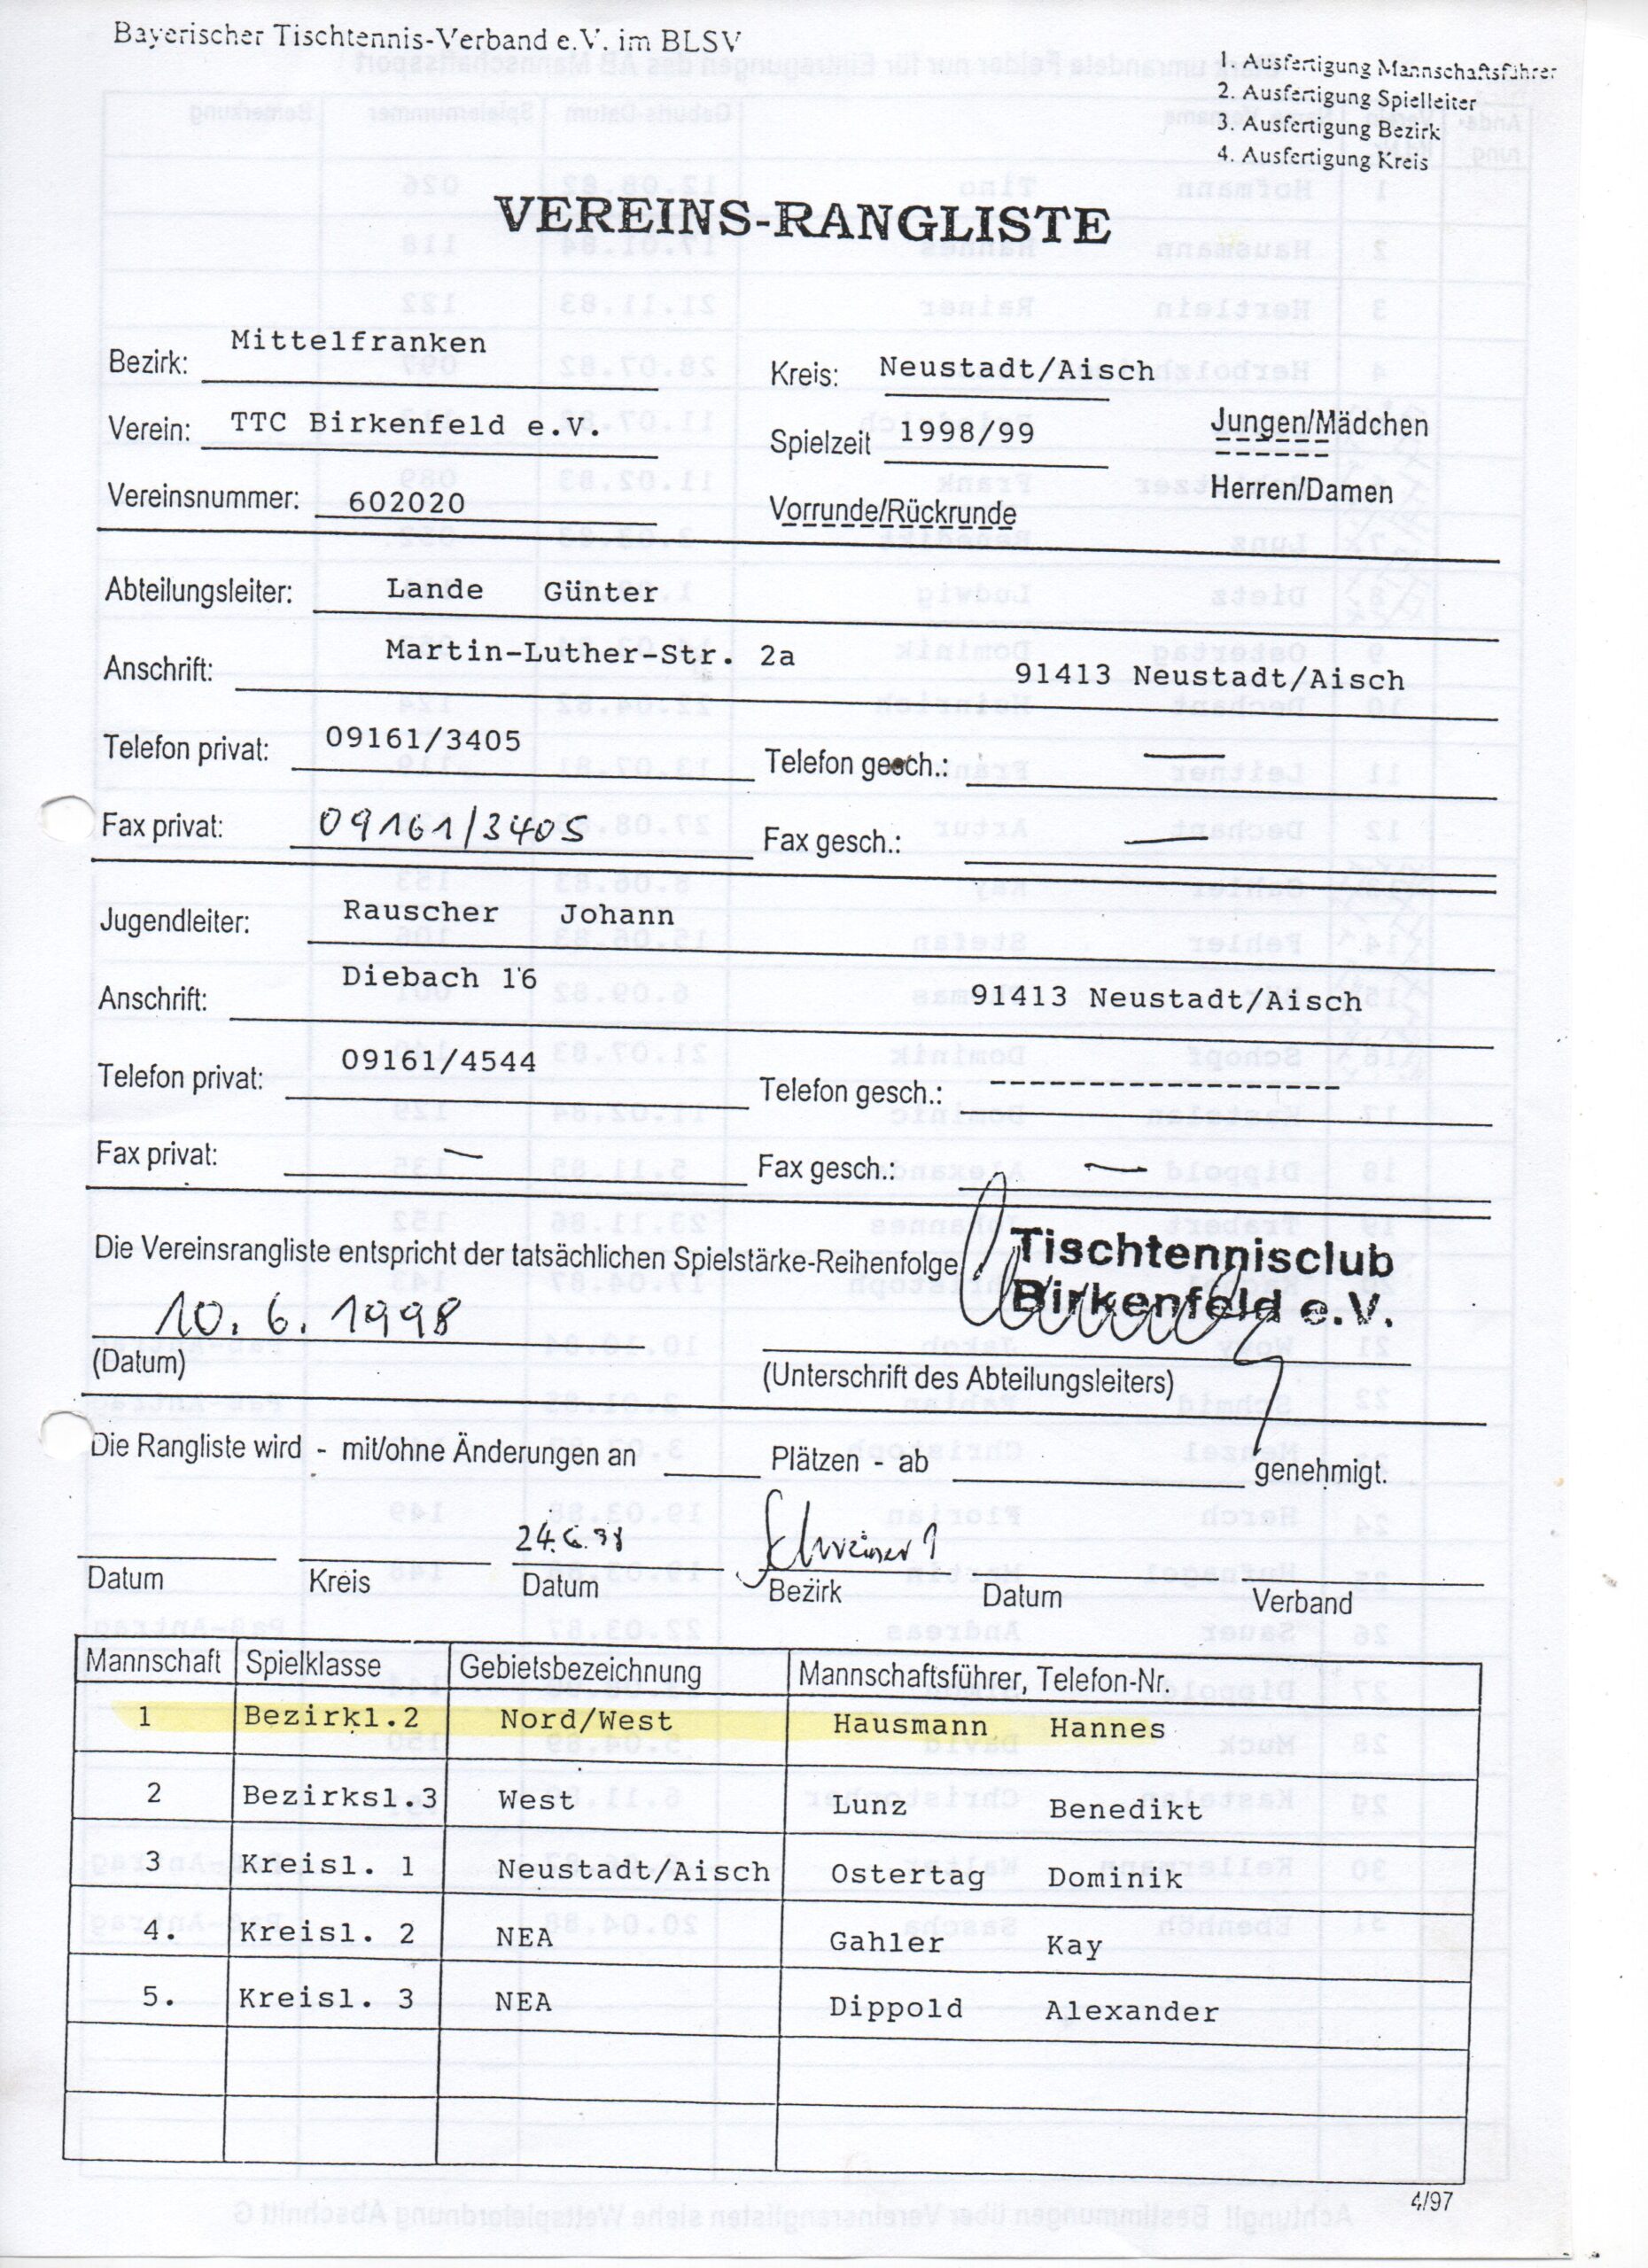 Bayerischer Tischtennis-Verband e.V. im BLSV
1. Ausfertigung Mannschaftsführer
2. Ausfertigung Spielleiter
3. Ausfertigung Bezirk
4. Ausfertigung Kreis
VEREINS-RANGLISTE
Bezirk: Mittelfranken
Kreis: Neustadt/Aisch
Verein: TTC Birkenfeld e.V.
Spielzeit 1998/99
Jungen/Mädchen
Vereinsnummer: 602020
Vorrunde/Rückrunde
Herren/Damen
Abteilungsleiter: Lande Günter
Anschrift: Martin-Luther-Str. 2a 91413 Neustadt/Aisch
Telefon privat: 09161/3405 Telefon gesch.: —
Fax privat: 09161/3405 Fax gesch.: —
Jugendleiter: Rauscher Johann
Anschrift: Diebach 16 91413 Neustadt/Aisch
Telefon privat: 09161/4544 Telefon gesch.: ------------------
Fax privat: — Fax gesch.: —
Die Vereinsrangliste entspricht der tatsächlichen Spielstärke-Reihenfolge
Tischtennisclub
Birkenfeld e.V.
10.6.1998
(Datum)
(Unterschrift des Abteilungsleiters)
Die Rangliste wird - mit/ohne Änderungen an Plätzen - ab genehmigt.
24.6.98
Datum Kreis Datum Bezirk Datum Verband
Mannschaft Spielklasse Gebietsbezeichnung Mannschaftsführer, Telefon-Nr.
1 Bezirkl.2 Nord/West Hausmann Hannes
2 Bezirksl.3 West Lunz Benedikt
3 Kreisl. 1 Neustadt/Aisch Ostertag Dominik
4. Kreisl. 2 NEA Gahler Kay
5. Kreisl. 3 NEA Dippold Alexander
4/97